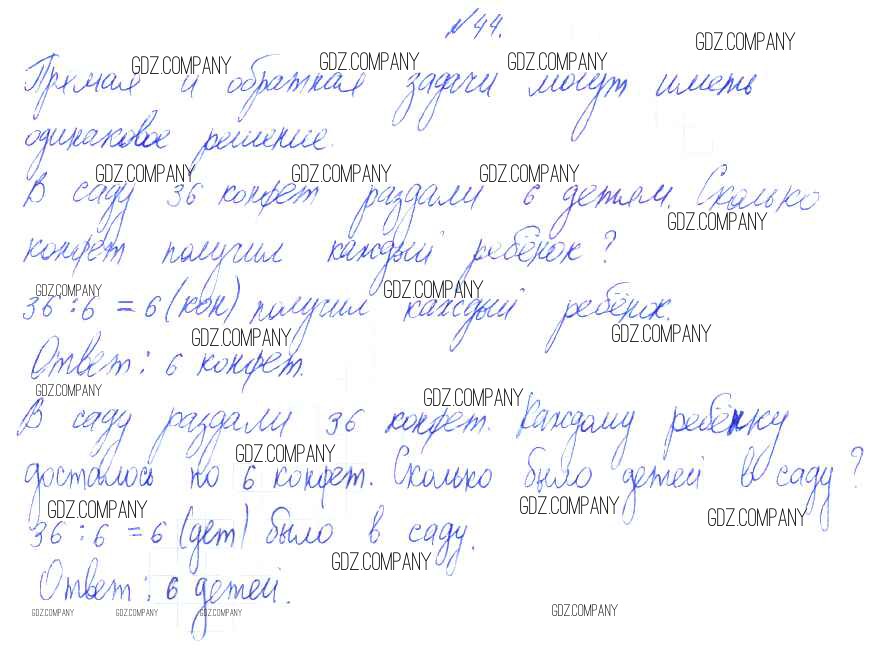 №44.
Прямая и обратная задачи могут иметь
одинаковое решение.
В саду 36 конфет раздали 6 детям. Сколько
конфет получил каждый ребёнок?
36 : 6 = 6 (кон) получил каждый ребёнок.
Ответ: 6 конфет.
В саду раздали 36 конфет. Каждому ребёнку
досталось по 6 конфет. Сколько было детей в саду?
36 : 6 = 6 (дет) было в саду.
Ответ: 6 детей.
GDZ.COMPANY GDZ.COMPANY GDZ.COMPANY GDZ.COMPANY
GDZ.COMPANY GDZ.COMPANY GDZ.COMPANY GDZ.COMPANY
GDZ.COMPANY GDZ.COMPANY GDZ.COMPANY GDZ.COMPANY
GDZ.COMPANY GDZ.COMPANY GDZ.COMPANY
GDZ.COMPANY GDZ.COMPANY GDZ.COMPANY GDZ.COMPANY
GDZ.COMPANY GDZ.COMPANY GDZ.COMPANY GDZ.COMPANY